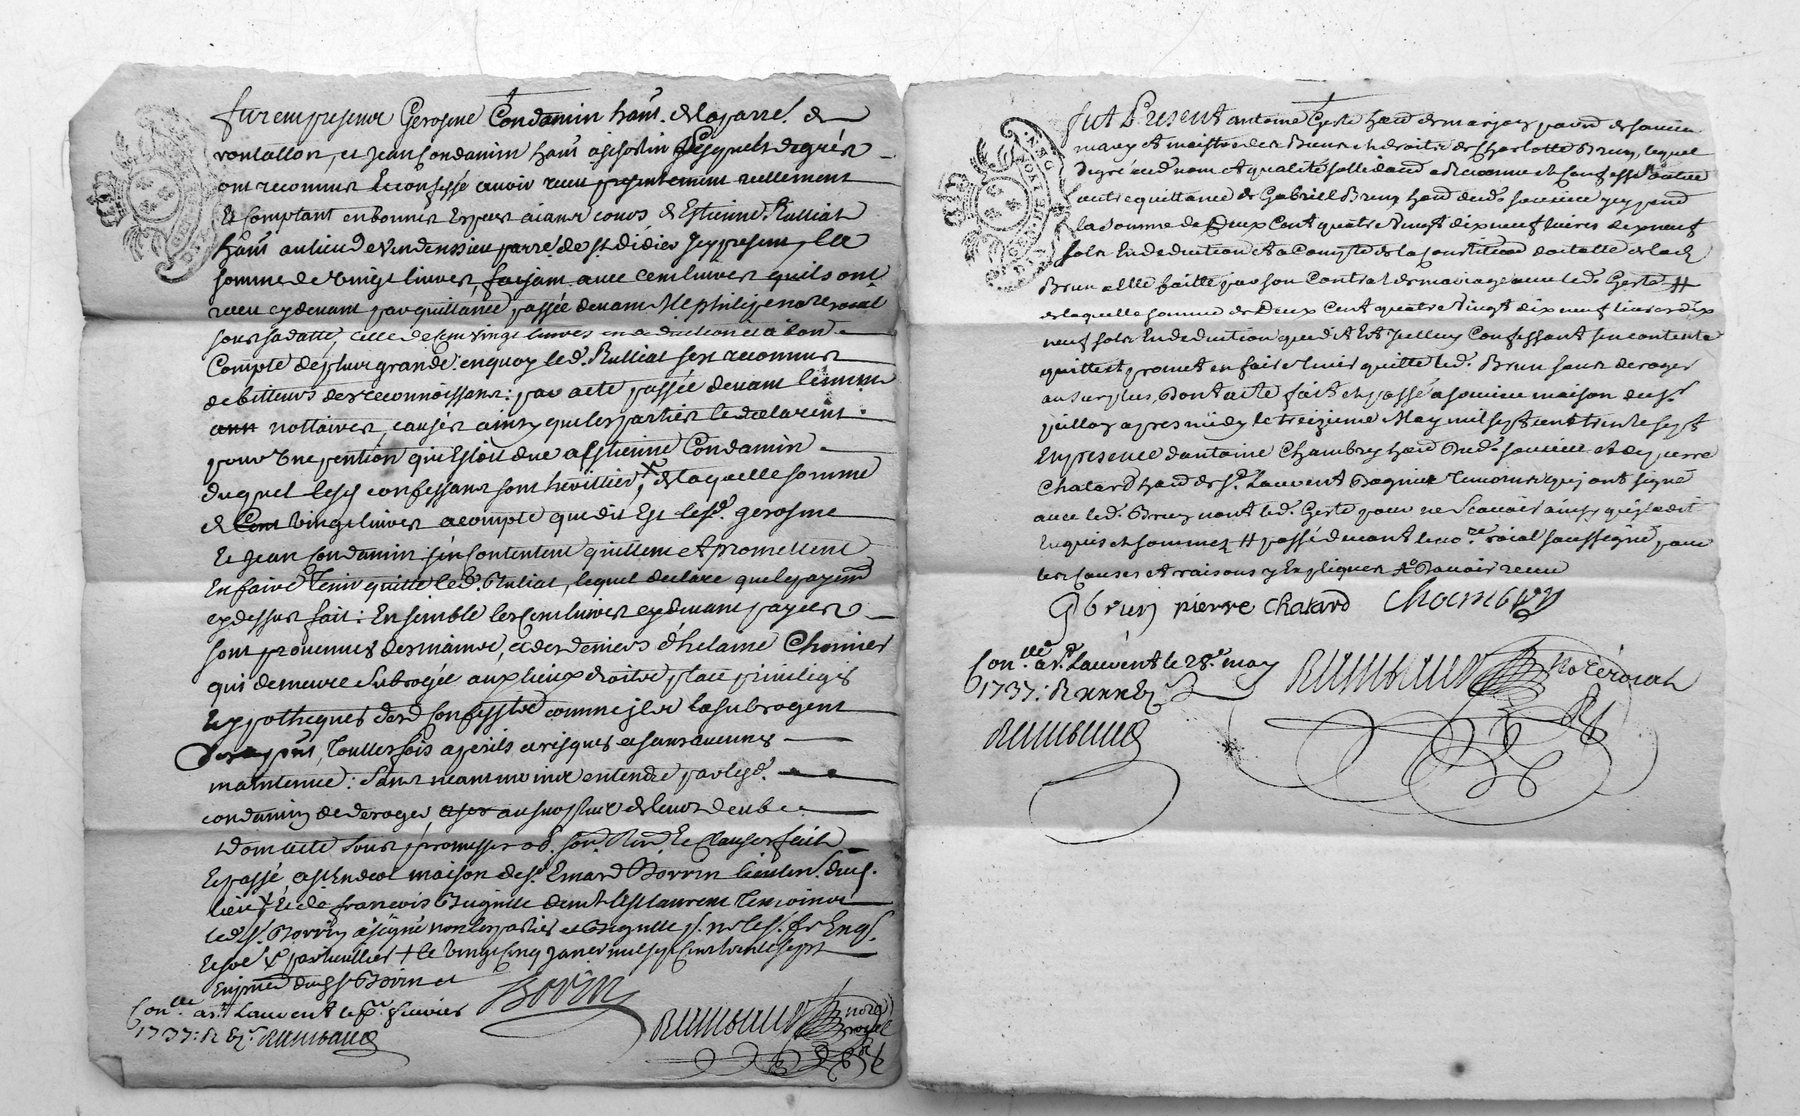 furent presens Gerosme Condamin hans. de la parre. de
rontallon, et Jean Condamin hans a st sorlin Lesquels de gré
ont reconnus et confessé avoir receu presentement reellement
et Comptant en bonnes especes aiant cours de Estienne Rulliat
hans au lieu de parre. de st. didier icy present, la
somme de vingt livres, faisant avec cent livres quils ont
receu cy devant par quittance passée devant Me philipe notre roial
sous sa datte, cette de cent vingt livres en deduction et à bon
Compte de plus grande. en quoy led. Rulliat sest reconnus
debitteurs des reconnoissans: par acte passée devant
nottaires, causés ainsy que les parties le declarent
pour une pention qui estoit due a Estienne Condamin
duquel lesd confessans sont heritiers, de laquelle somme
de Cent vingt livres acompte que dit Est lesd. gerosme
et Jean Condamin s'en Contentent quittent et promettent
en faire tenir quitte led. Rulliat, lequel declare que le payem
cy dessus fait: Ensemble les Cent livres cy devant payées
sont provenus des mains, et des deniers d'helaine Chomier
qui demeure subrogée aux lieux droits place privileges
et ypotheques desd Confessans comme ils la subrogent
Touttesfois a perils et risques et sans aucunes
maintenue: sans neantmoins entendre par lesd.
condamin de deroger, au surplus de leur deub
dont acte sous promesses ob. Clauses fait
et passé a st Endeol maison de sr. Emard Borrin
lieu et de francois demt. a st laurent Temoins
led sr. Borrin a signé non les parties et
le vingt cinq janvier mil sept cent trente sept
Con.lle a st. Laurent le pr. fevrier
1737: R Rimbaud
Borrin
Rimbaud no.re royal
fut Present antoine Geste hand de marjon parre de soucieu
mary et maistre des Biens et droits de Charlotte Brun, lequel
de gré aud. nom et qualité sollidaire a Reconnu et Confessé
de Gabriell Brun hand dud. soucieu icy present
la somme de Deux Cent quatre Vingt dix neuf livres dix neuf
sols En deduction et a Compte de la Constitution dotalle de lad.
Brun a elle faitte par son Contrat de mariage avec led. Geste #
de laquelle somme de Deux Cent quatre Vingt dix neuf livres dix
neuf sols En deduction que dit Est Jcelluy Confessant s'en contente
quitte et promet en faire tenir quitte led. Brun sans deroger
au surplus, Dont acte fait et passé a soucieu maison du sr.
juillon apres midy le treizieme May mil sept cent trente sept
En presence d'antoine Chambry hand dud. soucieu et de pierre
Chatard hand de st. Laurent Dagnier temoins qui ont signé
avec led. Brun non led. Geste pour ne scavoir ainsy quil a dit
Enquis et sommez # passé devant le no.re roial soussigné pour
les Causes et raisons y Expliquées
G brun pierre Chatard Chambry
Con.lle a st. Laurent le 28.e may
1737: R
Rimbaud
Rimbaud no.re roial